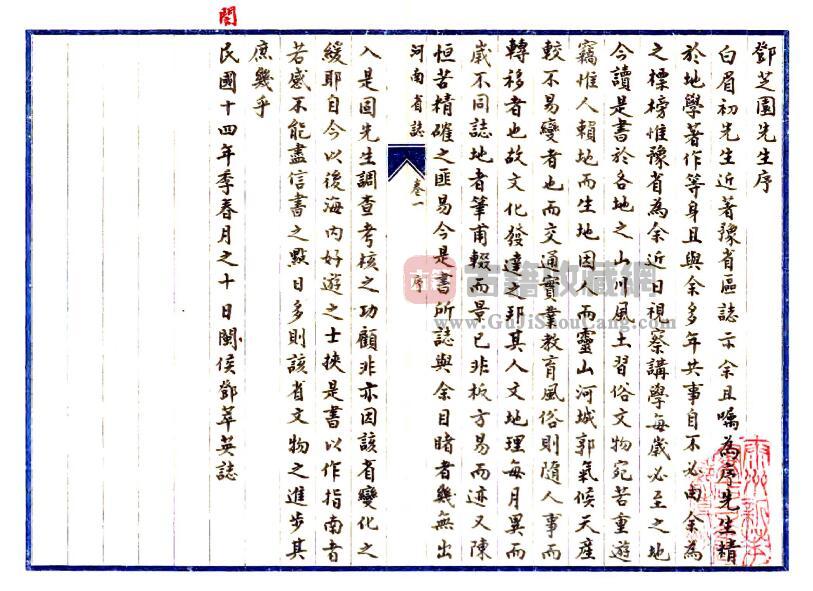 閩
鄧芝園先生序
白眉初先生近著豫省區誌示余且囑為序先生精
於地學著作等身且與余多年共事自不必由余為
之標榜惟豫省為余近日視察講學每歲必至之地
今讀是書於各地之山川風土習俗文物宛若重遊
竊惟人賴地而生地因人而靈山河城郭氣候天產
較不易變者也而交通實業教育風俗則隨人事而
轉移者也故文化發達之邦其人文地理每月異而
歲不同誌地者筆甫輟而景已非板方易而迹又陳
恒苦精確之匪易今是書所誌與余目睹者幾無出
河南省誌 卷一 序
入是固先生調查考核之功顧非亦因該省變化之
緩耶自今以後海內好遊之士挾是書以作指南者
若感不能盡信書之點日多則該省文物之進步其
庶幾乎
民國十四年季春月之十日閩侯鄧萃英誌
古籍 古籍收藏網
www.GuJiShouCang.com